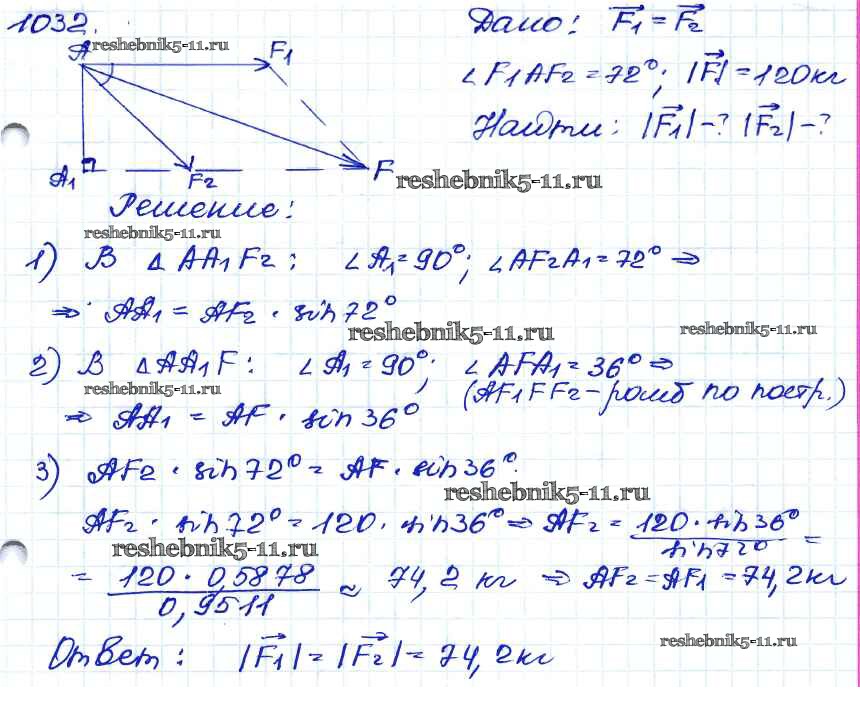 1032.
reshebnik5-11.ru
A F1
A1 F2 F
Дано: F1 = F2
∠F1AF2 = 72°; |F| = 120кг
Найти: |F1| - ? |F2| - ?
reshebnik5-11.ru
Решение:
reshebnik5-11.ru
1) В △AA1F2: ∠A1 = 90°; ∠AF2A1 = 72° ⇒
⇒ AA1 = AF2 · sin 72°
reshebnik5-11.ru
reshebnik5-11.ru
2) В △AA1F: ∠A1 = 90°; ∠AFA1 = 36° ⇒
reshebnik5-11.ru
(AF1FF2 - ромб по постр.)
⇒ AA1 = AF · sin 36°
3) AF2 · sin 72° = AF · sin 36°.
reshebnik5-11.ru
AF2 · sin 72° = 120 · sin 36° ⇒ AF2 = 120 · sin 36° / sin 72° =
reshebnik5-11.ru
= 120 · 0,5878 / 0,9511 ≈ 74,2 кг ⇒ AF2 = AF1 = 74,2кг
reshebnik5-11.ru
Ответ: |F1| = |F2| = 74,2кг